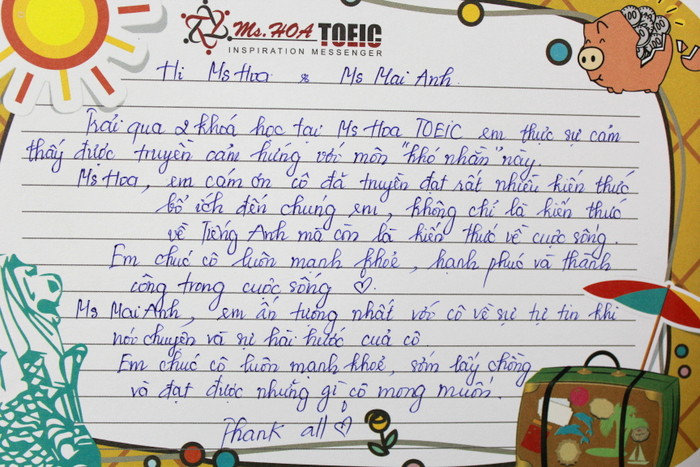 Ms. HOA TOEIC
INSPIRATION MESSENGER
Hi Ms Hoa & Ms Mai Anh.
Trải qua 2 khoá học tại Ms Hoa TOEIC em thực sự cảm
thấy được truyền cảm hứng với môn "khó nhằn" này.
Ms Hoa, em cám ơn cô đã truyền đạt rất nhiều kiến thức
bổ ích đến chúng em, không chỉ là kiến thức
về Tiếng Anh mà còn là kiến thức về cuộc sống.
Em chúc cô luôn mạnh khoẻ, hạnh phúc và thành
công trong cuộc sống ♡.
Ms Mai Anh, em ấn tượng nhất với cô về sự tự tin khi
nói chuyện và sự hài hước của cô.
Em chúc cô luôn mạnh khoẻ, sớm lấy chồng
và đạt được những gì cô mong muốn.
Thank all ♡